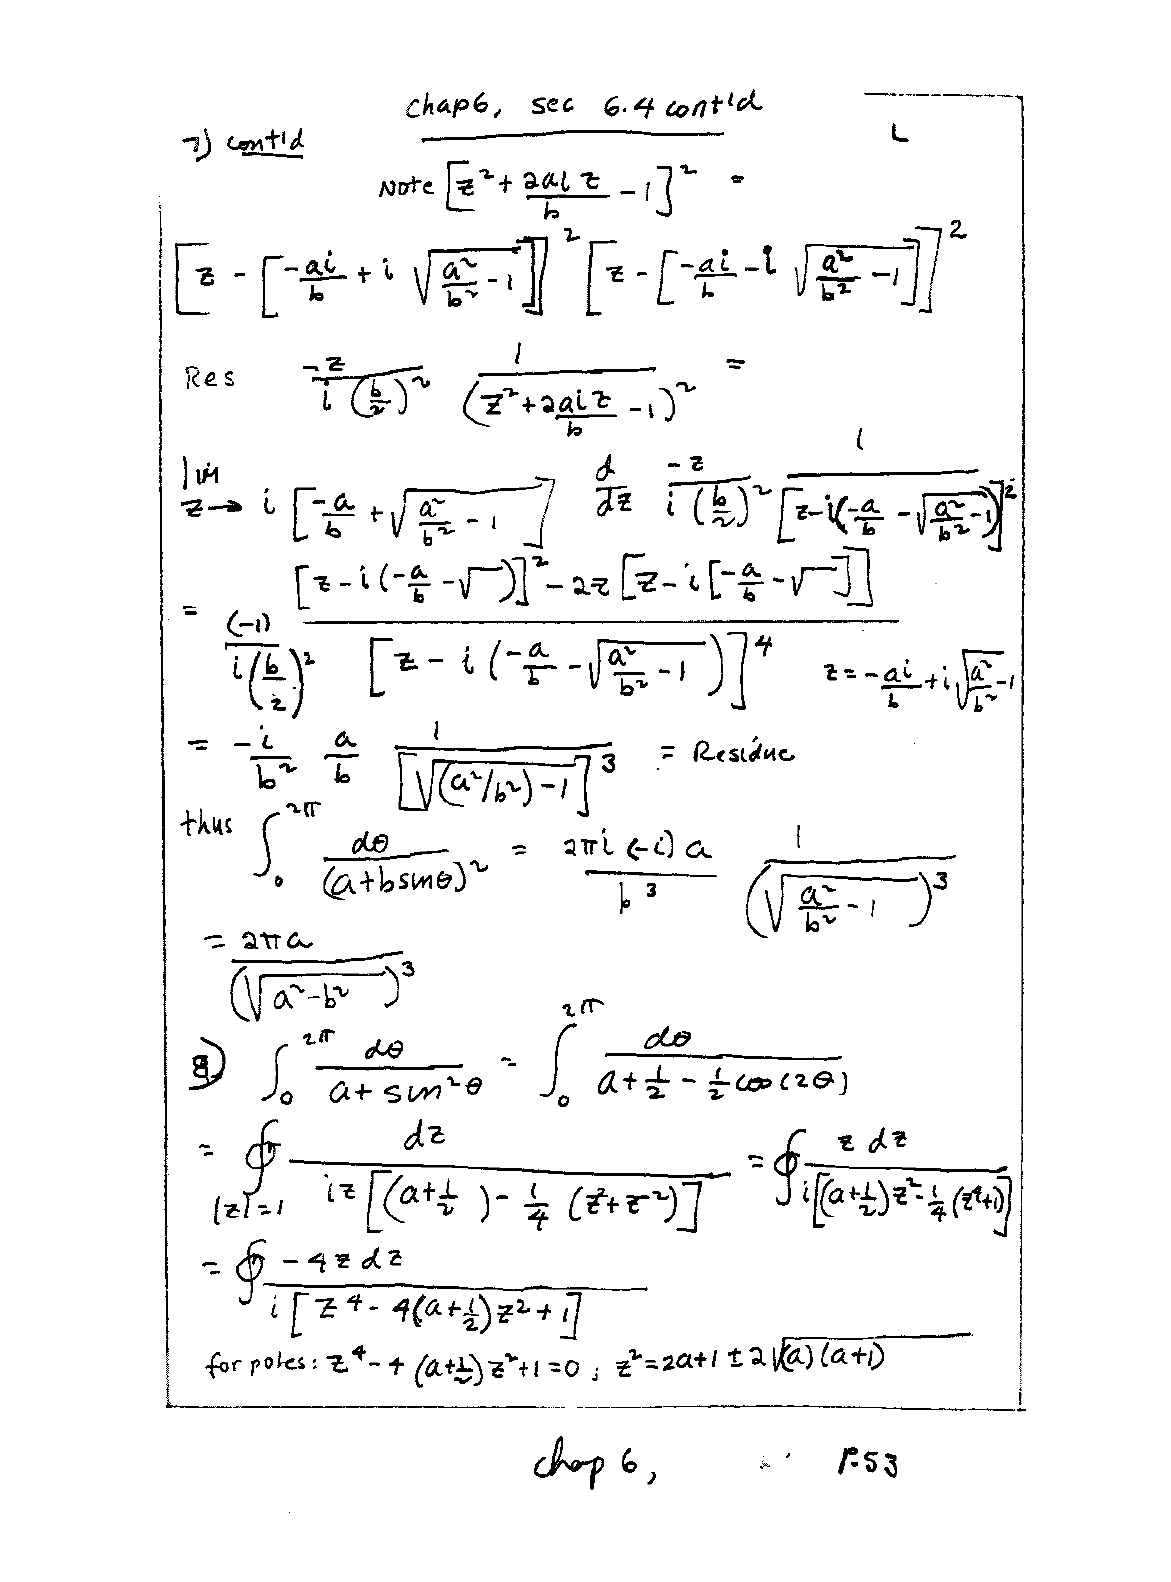 chap 6, sec 6.4 cont'd
7) cont'd
L
Note [z² + 2aiz/b − 1]² =
[z − [−ai/b + i √(a²/b² − 1)]]² [z − [−ai/b − i √(a²/b² − 1)]]²
Res −z/(i (b/2)²) 1/(z² + 2aiz/b − 1)² =
lim z → i [−a/b + √(a²/b² − 1)] d/dz −z/(i (b/2)²) 1/[z − i(−a/b − √(a²/b² − 1))]²
= (−1)/(i (b/2)²) ([z − i(−a/b − √‾)]² − 2z [z − i[−a/b − √‾]])/[z − i(−a/b − √(a²/b² − 1))]⁴ z = −ai/b + i√(a²/b² − 1)
= −i/b² a/b 1/[√((a²/b²) − 1)]³ = Residue
thus ∫₀^2π dθ/(a + b sinθ)² = 2πi (−i) a/b³ 1/(√(a²/b² − 1))³
= 2πa/(√(a² − b²))³
8) ∫₀^2π dθ/(a + sin²θ) = ∫₀^2π dθ/(a + 1/2 − 1/2 cos(2θ))
= ∮_|z|=1 dz/(iz[(a + 1/2) − 1/4 (z² + z⁻²)]) = ∮ z dz/(i[(a + 1/2)z² − 1/4 (z⁴ + 1)])
= ∮ −4z dz/(i[z⁴ − 4(a + 1/2)z² + 1])
for poles: z⁴ − 4(a + 1/2)z² + 1 = 0 ; z² = 2a + 1 ± 2√((a)(a+1))
chap 6, P-53